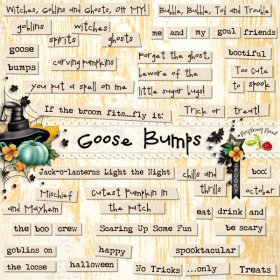 Witches, Goblins and Ghosts, OH MY!
Bubble, Bubble, Toil and Trouble
goblins
witches
spirits
ghosts
me and my goul friends
goose
bumps
carving pumpkins
forget the ghost,
bootiful
beware of the
Too cute
to spook
you put a spell on me
little sugar bugs!
If the broom fits...fly it!
Trick or treat!
Goose Bumps
Jack-o-lanterns Light the Night
chills and
thrills
boo!
october
Mischief
and Mayhem
cutest pumpkin in
the patch
eat drink and
be scary
the boo crew
Scaring Up Some Fun
goblins on
the loose
happy
halloween
spooktacular
No Tricks ...only Treats